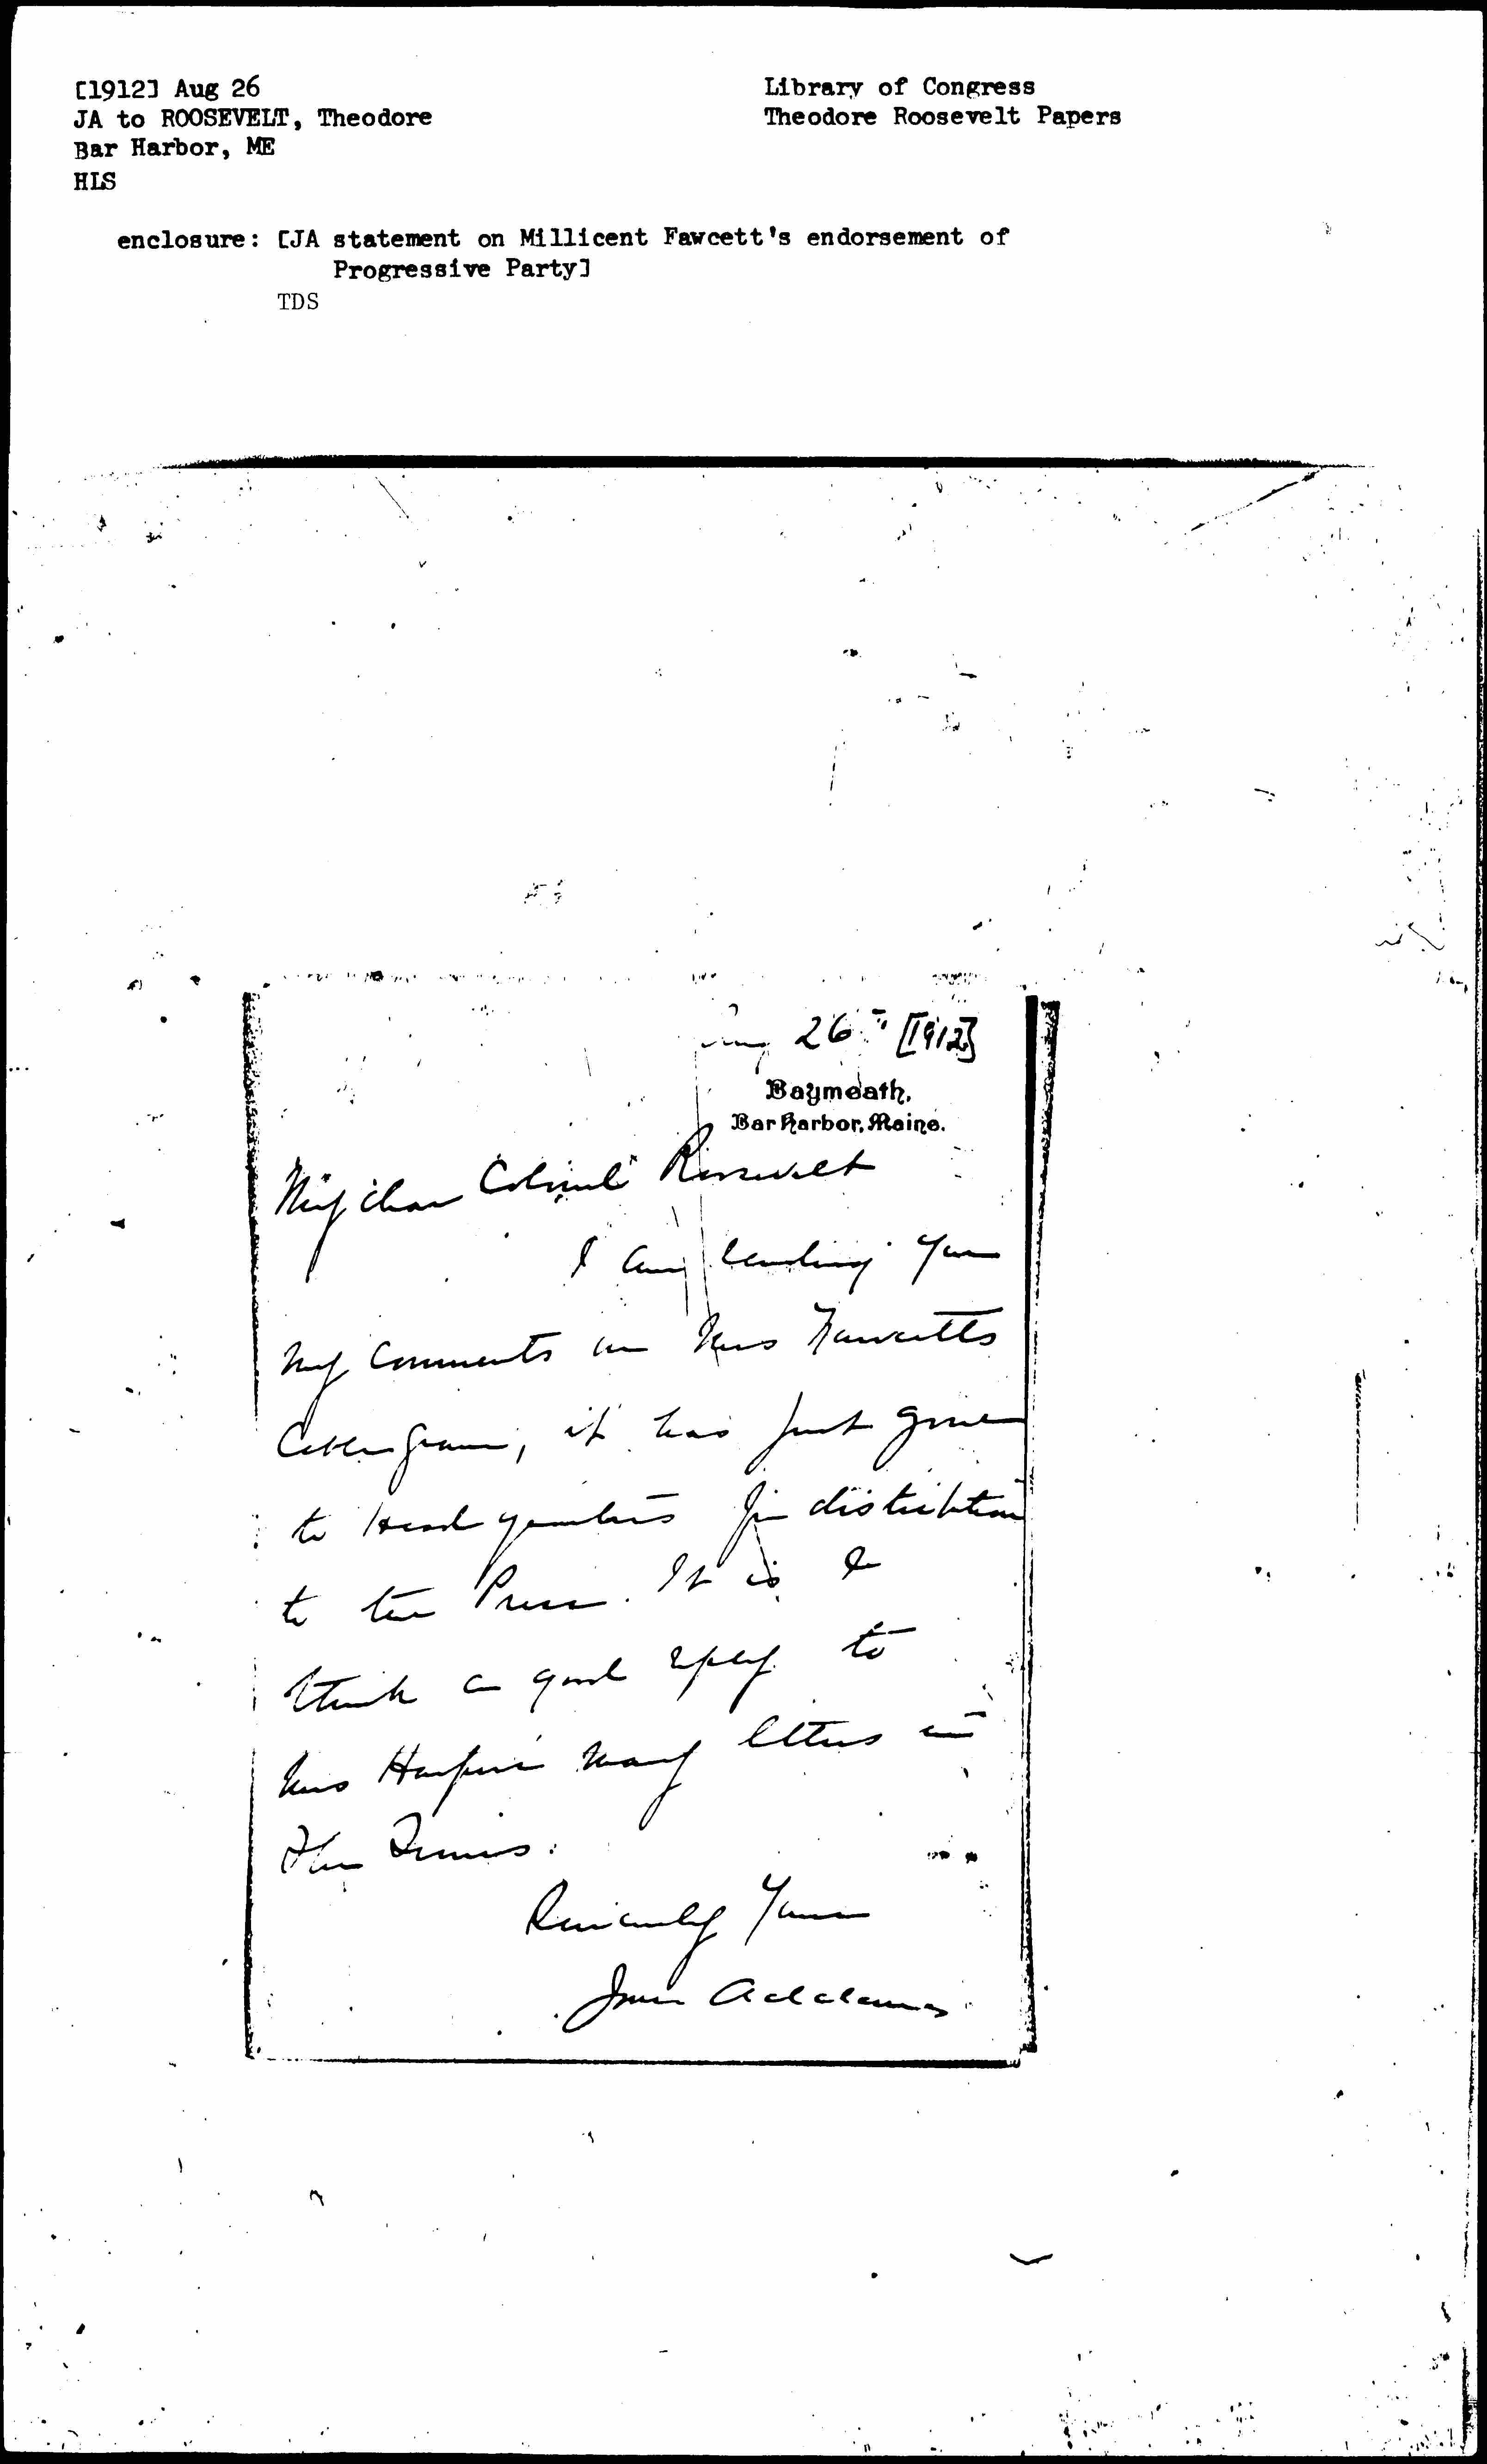 [1912] Aug 26
JA to ROOSEVELT, Theodore
Bar Harbor, ME
HLS
Library of Congress
Theodore Roosevelt Papers
enclosure: [JA statement on Millicent Fawcett's endorsement of
Progressive Party]
TDS
Aug 26th [1912]
Baymeath,
Bar Harbor, Maine.
My dear Colonel Roosevelt
I am sending you
my comments on Mrs Fawcetts
Cablegram, it has just gone
to Headquarters for distribution
to the Press. It is I
think a good reply to
Mrs Harper's many letters in
The Times.
Sincerely Yours
Jane Addams